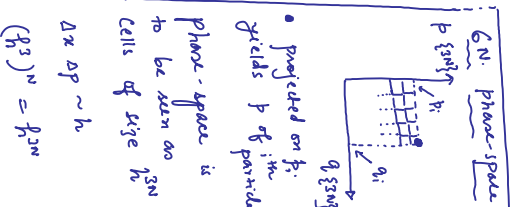 6N. phase-space
p {3N}
pi
qi
q {3N}
• projected on pi
yields p of ith
particle
phase-space is
to be seen as
cells of size h^3N
Δx Δp ~ h
(h^3)^N = h^3N